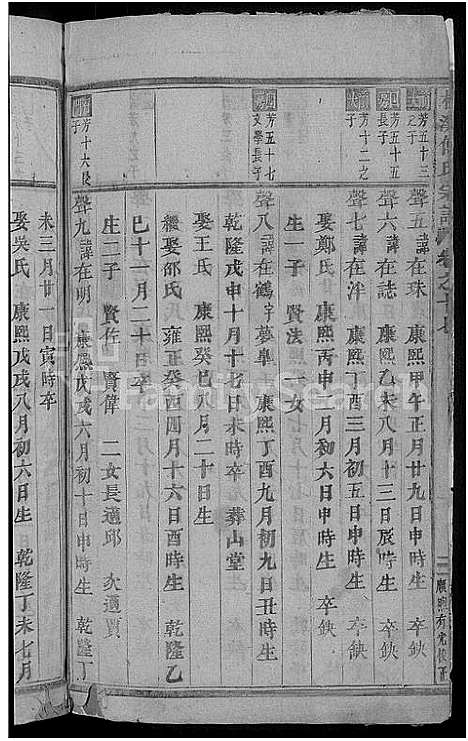 芳五十三之子
聲五 諱在珠 康熙甲午正月廿九日申時生 卒缺
芳五十五
聲六 諱在誌 康熙乙未八月十三日辰時生 卒缺
芳十二之子
聲七 諱在泮 康熙丁酉三月初五日申時生 卒缺
娶鄭氏 康熙丙申二月初六日寅時生 卒缺
生一子 賢法 一女
芳五十七文學長子
聲八 諱在鶴 字夢臯 康熙丁酉九月初九日丑時生
乾隆戊申十月十七日未時卒 葬山堂
娶王氏 康熙癸巳八月二十日生
繼娶邵氏 雍正癸卯四月十六日酉時生 乾隆乙
巳十一月二十日卒
生二子 賢佐 賢偉 二女長適邱 次適賈
芳十六長子
聲九 諱在明 康熙戊戌六月初十日申時生 乾隆丁
未三月廿一日寅時卒
娶吳氏 康熙戊戌八月初六日生 乾隆丁未七月
FamilySearch